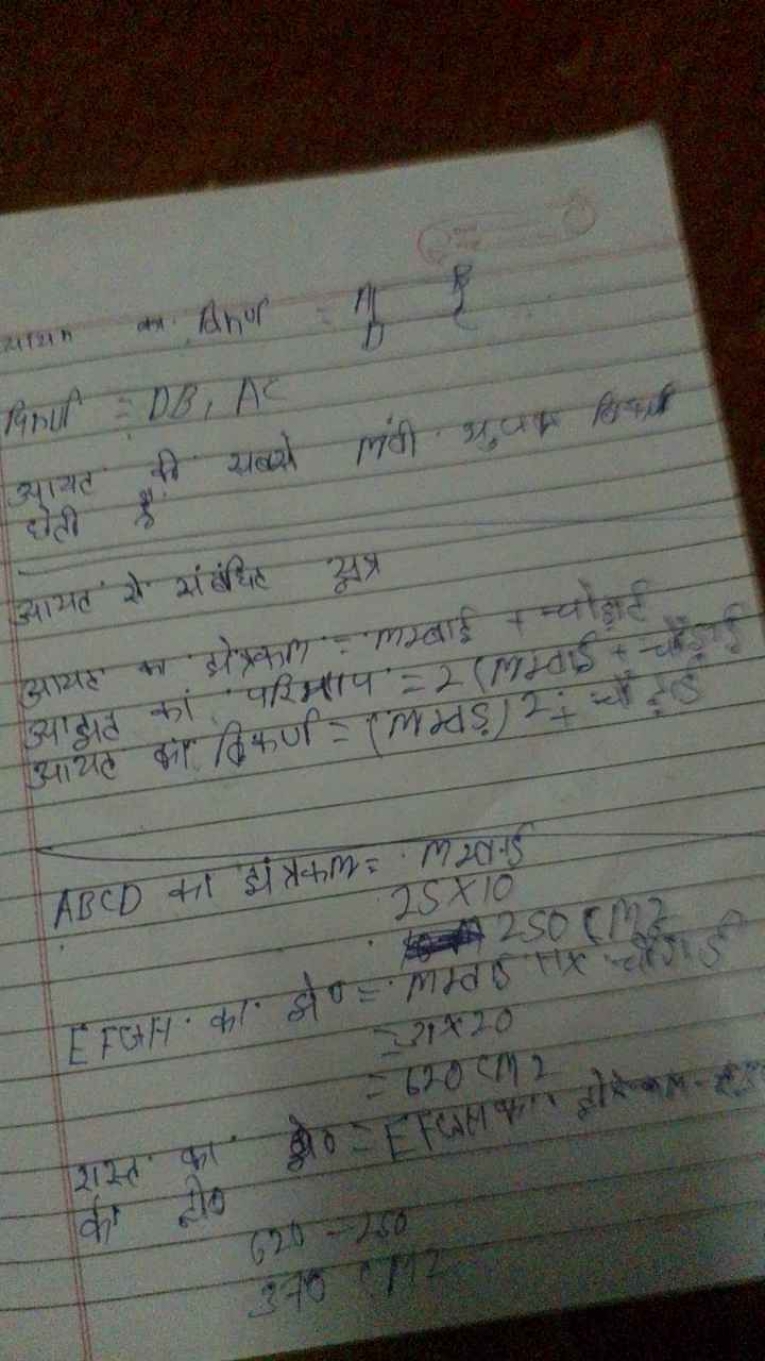 का विकर्ण = A B
D C
विकर्ण = DB, AC
आयत की सबसे लंबी विकर्ण
होती है
आयत से संबंधित सूत्र
आयत का क्षेत्रफल = लम्बाई + चौड़ाई
आयत का परिमाप = 2 (लम्बाई + चौड़ाई
आयत का विकर्ण = (लम्बाई) 2 + चौड़ाई
ABCD का क्षेत्रफल = लम्बाई
25 X 10
250 CM2
EFGH का क्षे० = लम्बाई X चौड़ाई
= 31 X 20
= 620 CM2
का क्षे० = EFGH का क्षेत्रफल -
का क्षे०
620 - 250
370 CM2